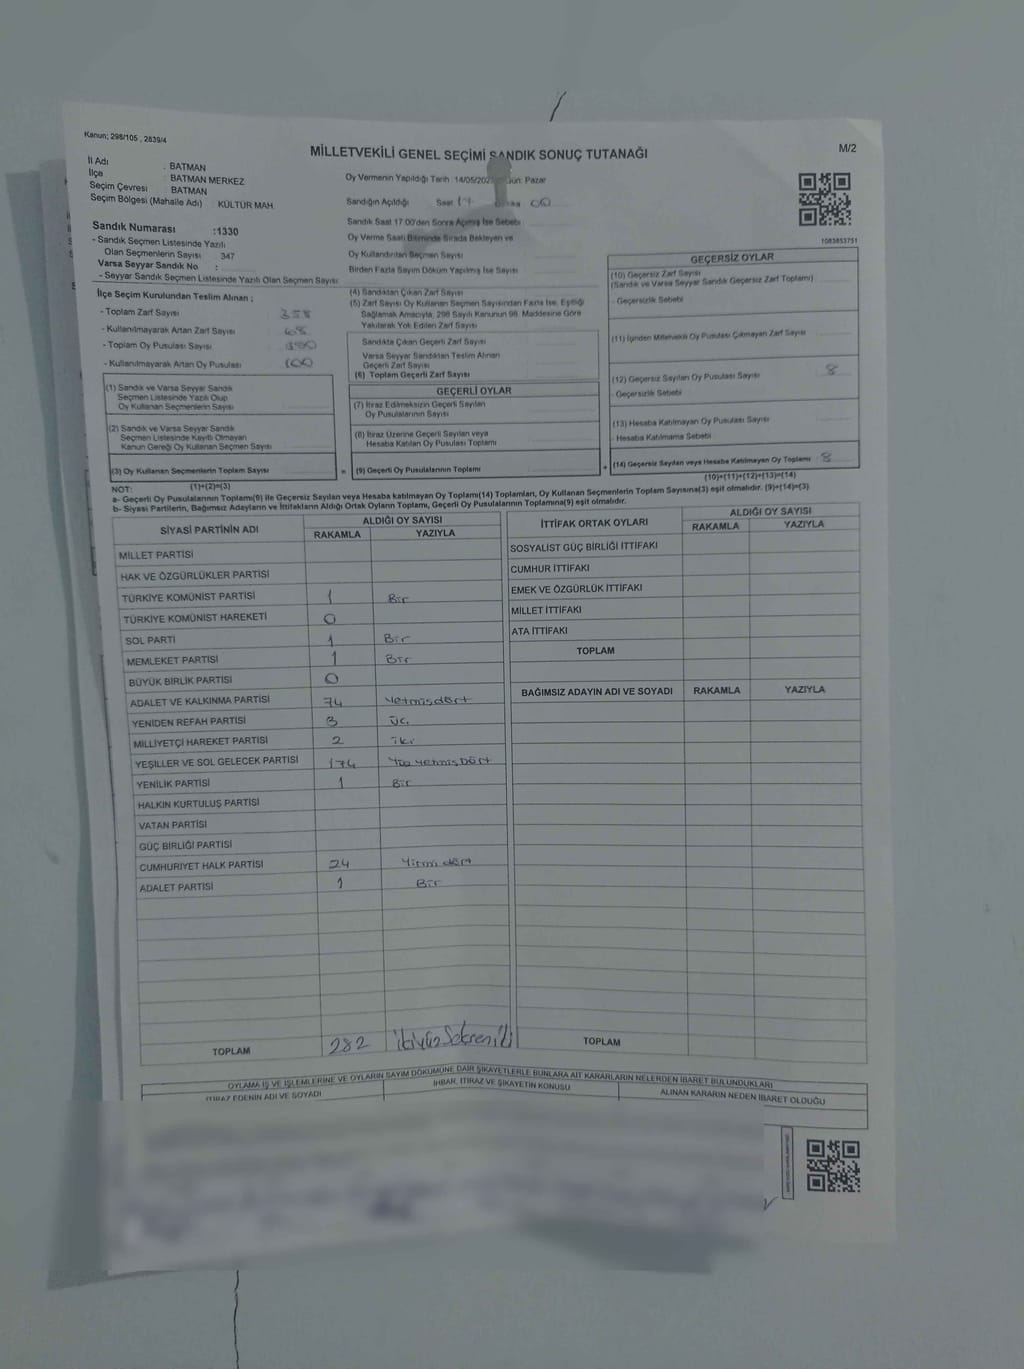 Kanun; 298/105 , 2839/4
MİLLETVEKİLİ GENEL SEÇİMİ SANDIK SONUÇ TUTANAĞI
M/2
İl Adı : BATMAN
İlçe : BATMAN MERKEZ
Seçim Çevresi : BATMAN
Seçim Bölgesi (Mahalle Adı) : KÜLTÜR MAH.
Oy Vermenin Yapıldığı Tarih 14/05/202 Gün: Pazar
Sandığın Açıldığı Saat 17 00
Sandık Saat 17.00'den Sonra Açılmış İse Sebebi
Oy Verme Saati Bitiminde Sırada Bekleyen ve
Oy Kullandırılan Seçmen Sayısı
Birden Fazla Sayım Döküm Yapılmış İse Sayısı
1083853751
Sandık Numarası :1330
- Sandık Seçmen Listesinde Yazılı
Olan Seçmenlerin Sayısı : 347
Varsa Seyyar Sandık No :
- Seyyar Sandık Seçmen Listesinde Yazılı Olan Seçmen Sayısı
İlçe Seçim Kurulundan Teslim Alınan ;
- Toplam Zarf Sayısı 358
- Kullanılmayarak Artan Zarf Sayısı 68
- Toplam Oy Pusulası Sayısı
- Kullanılmayarak Artan Oy Pusulası 100
(1) Sandık ve Varsa Seyyar Sandık
Seçmen Listesinde Yazılı Olup
Oy Kullanan Seçmenlerin Sayısı
(2) Sandık ve Varsa Seyyar Sandık
Seçmen Listesinde Kayıtlı Olmayan
Kanun Gereği Oy Kullanan Seçmen Sayısı
(3) Oy Kullanan Seçmenlerin Toplam Sayısı
(1)+(2)=(3)
(4) Sandıktan Çıkan Zarf Sayısı
(5) Zarf Sayısı Oy Kullanan Seçmen Sayısından Fazla İse, Eşitliği
Sağlamak Amacıyla, 298 Sayılı Kanunun 98. Maddesine Göre
Yakılarak Yok Edilen Zarf Sayısı
Sandıkta Çıkan Geçerli Zarf Sayısı
Varsa Seyyar Sandıktan Teslim Alınan
Geçerli Zarf Sayısı
(6) Toplam Geçerli Zarf Sayısı
GEÇERLİ OYLAR
(7) İtiraz Edilmeksizin Geçerli Sayılan
Oy Pusulalarının Sayısı
(8) İtiraz Üzerine Geçerli Sayılan veya
Hesaba Katılan Oy Pusulası Toplamı
= (9) Geçerli Oy Pusulalarının Toplamı
GEÇERSİZ OYLAR
(10) Geçersiz Zarf Sayısı
(Sandık ve Varsa Seyyar Sandık Geçersiz Zarf Toplamı)
- Geçersizlik Sebebi
(11) İçinden Milletvekili Oy Pusulası Çıkmayan Zarf Sayısı
(12) Geçersiz Sayılan Oy Pusulası Sayısı 8
- Geçersizlik Sebebi
(13) Hesaba Katılmayan Oy Pusulası Sayısı
- Hesaba Katılmama Sebebi
+ (14) Geçersiz Sayılan veya Hesaba Katılmayan Oy Toplamı 8
(10)+(11)+(12)+(13)=(14)
NOT:
a- Geçerli Oy Pusulalarının Toplamı(9) ile Geçersiz Sayılan veya Hesaba katılmayan Oy Toplamı(14) Toplamları, Oy Kullanan Seçmenlerin Toplam Sayısına(3) eşit olmalıdır. (9)+(14)=(3)
b- Siyasi Partilerin, Bağımsız Adayların ve İttifakların Aldığı Ortak Oyların Toplamı, Geçerli Oy Pusulalarının Toplamına(9) eşit olmalıdır.
SİYASİ PARTİNİN ADI ALDIĞI OY SAYISI
RAKAMLA YAZIYLA
MİLLET PARTİSİ
HAK VE ÖZGÜRLÜKLER PARTİSİ
TÜRKİYE KOMÜNİST PARTİSİ 1 Bir
TÜRKİYE KOMÜNİST HAREKETİ 0
SOL PARTİ 1 Bir
MEMLEKET PARTİSİ 1 Bir
BÜYÜK BİRLİK PARTİSİ 0
ADALET VE KALKINMA PARTİSİ 74 Yetmişdört
YENİDEN REFAH PARTİSİ 3 Üç
MİLLİYETÇİ HAREKET PARTİSİ 2 iki
YEŞİLLER VE SOL GELECEK PARTİSİ 174 Yüz Yetmiş Dört
YENİLİK PARTİSİ 1 Bir
HALKIN KURTULUŞ PARTİSİ
VATAN PARTİSİ
GÜÇ BİRLİĞİ PARTİSİ
CUMHURİYET HALK PARTİSİ 24 Yirmi dört
ADALET PARTİSİ 1 Bir
TOPLAM 282 ikiyüz Seksen iki
İTTİFAK ORTAK OYLARI ALDIĞI OY SAYISI
RAKAMLA YAZIYLA
SOSYALİST GÜÇ BİRLİĞİ İTTİFAKI
CUMHUR İTTİFAKI
EMEK VE ÖZGÜRLÜK İTTİFAKI
MİLLET İTTİFAKI
ATA İTTİFAKI
TOPLAM
BAĞIMSIZ ADAYIN ADI VE SOYADI RAKAMLA YAZIYLA
TOPLAM
OYLAMA İŞ VE İŞLEMLERİNE VE OYLARIN SAYIM DÖKÜMÜNE DAİR ŞİKAYETLERLE BUNLARA AİT KARARLARIN NELERDEN İBARET BULUNDUKLARI
İTİRAZ EDENİN ADI VE SOYADI İHBAR, İTİRAZ VE ŞİKAYETİN KONUSU ALINAN KARARIN NEDEN İBARET OLDUĞU